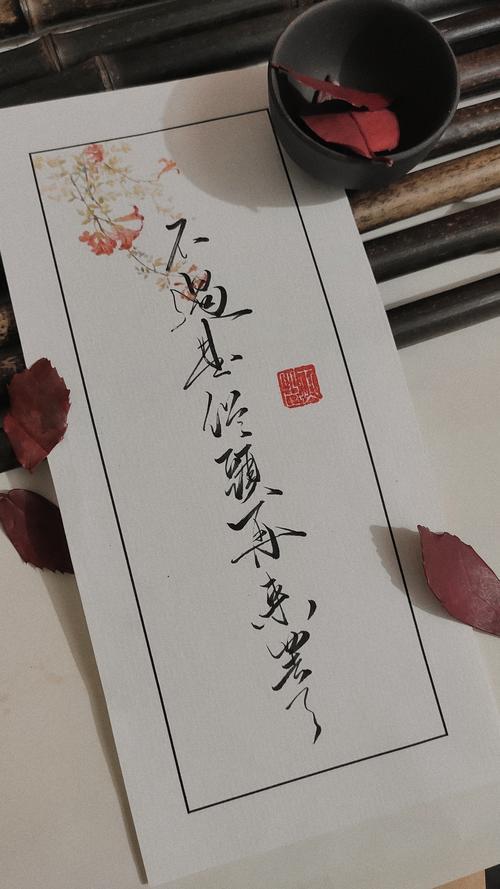 不過是從頭再來罷了